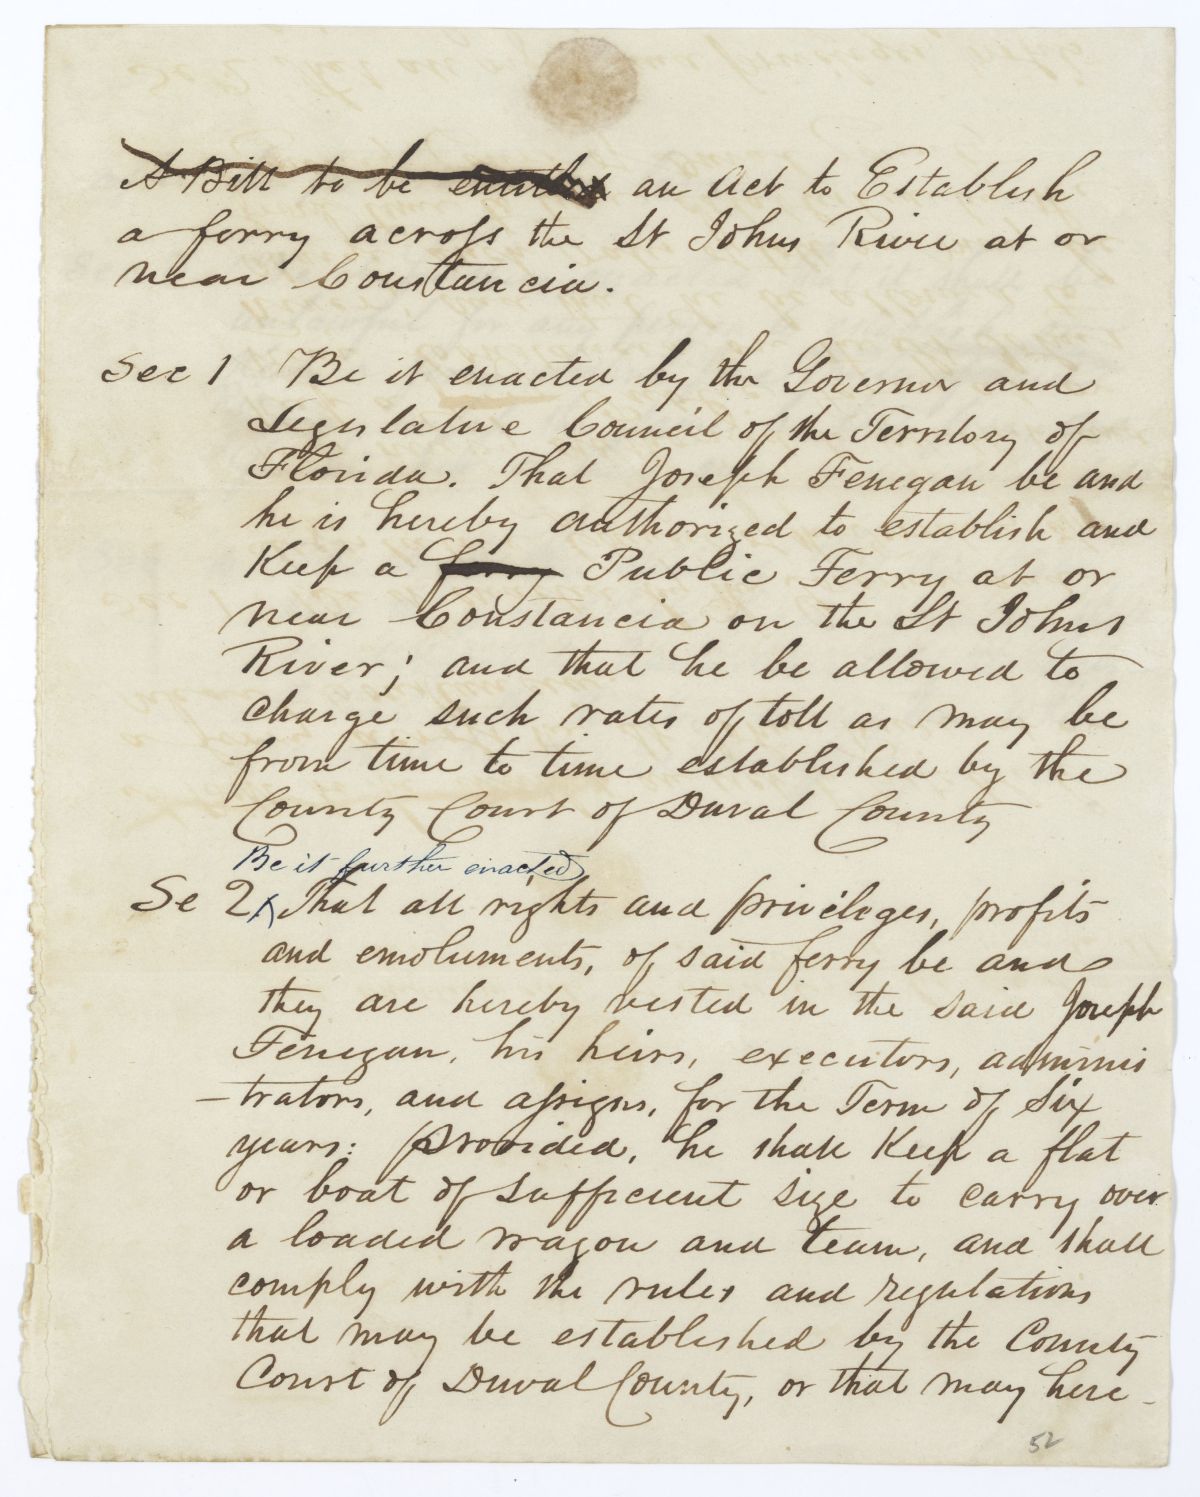 A Bill to be entitled an Act to Establish
a ferry across the St Johns River at or
near Constancia.
Sec 1 Be it enacted by the Governor and
Legislative Council of the Territory of
Florida. That Joseph Fenegan be and
he is hereby authorized to establish and
Keep a ferry Public Ferry at or
near Constancia on the St Johns
River; and that he be allowed to
charge such rates of toll as may be
from time to time established by the
County Court of Duval County
Be it further enacted
Se 2 ^ That all rights and privileges, profits
and emoluments, of said ferry be and
they are hereby vested in the said Joseph
Fenegan, his heirs, executors, adminis
-trators, and assigns, for the Term of Six
years: provided, he shall Keep a flat
or boat of sufficient size to carry over
a loaded wagon and team, and shall
comply with the rules and regulations
that may be established by the County
Court of Duval County, or that may here-
52